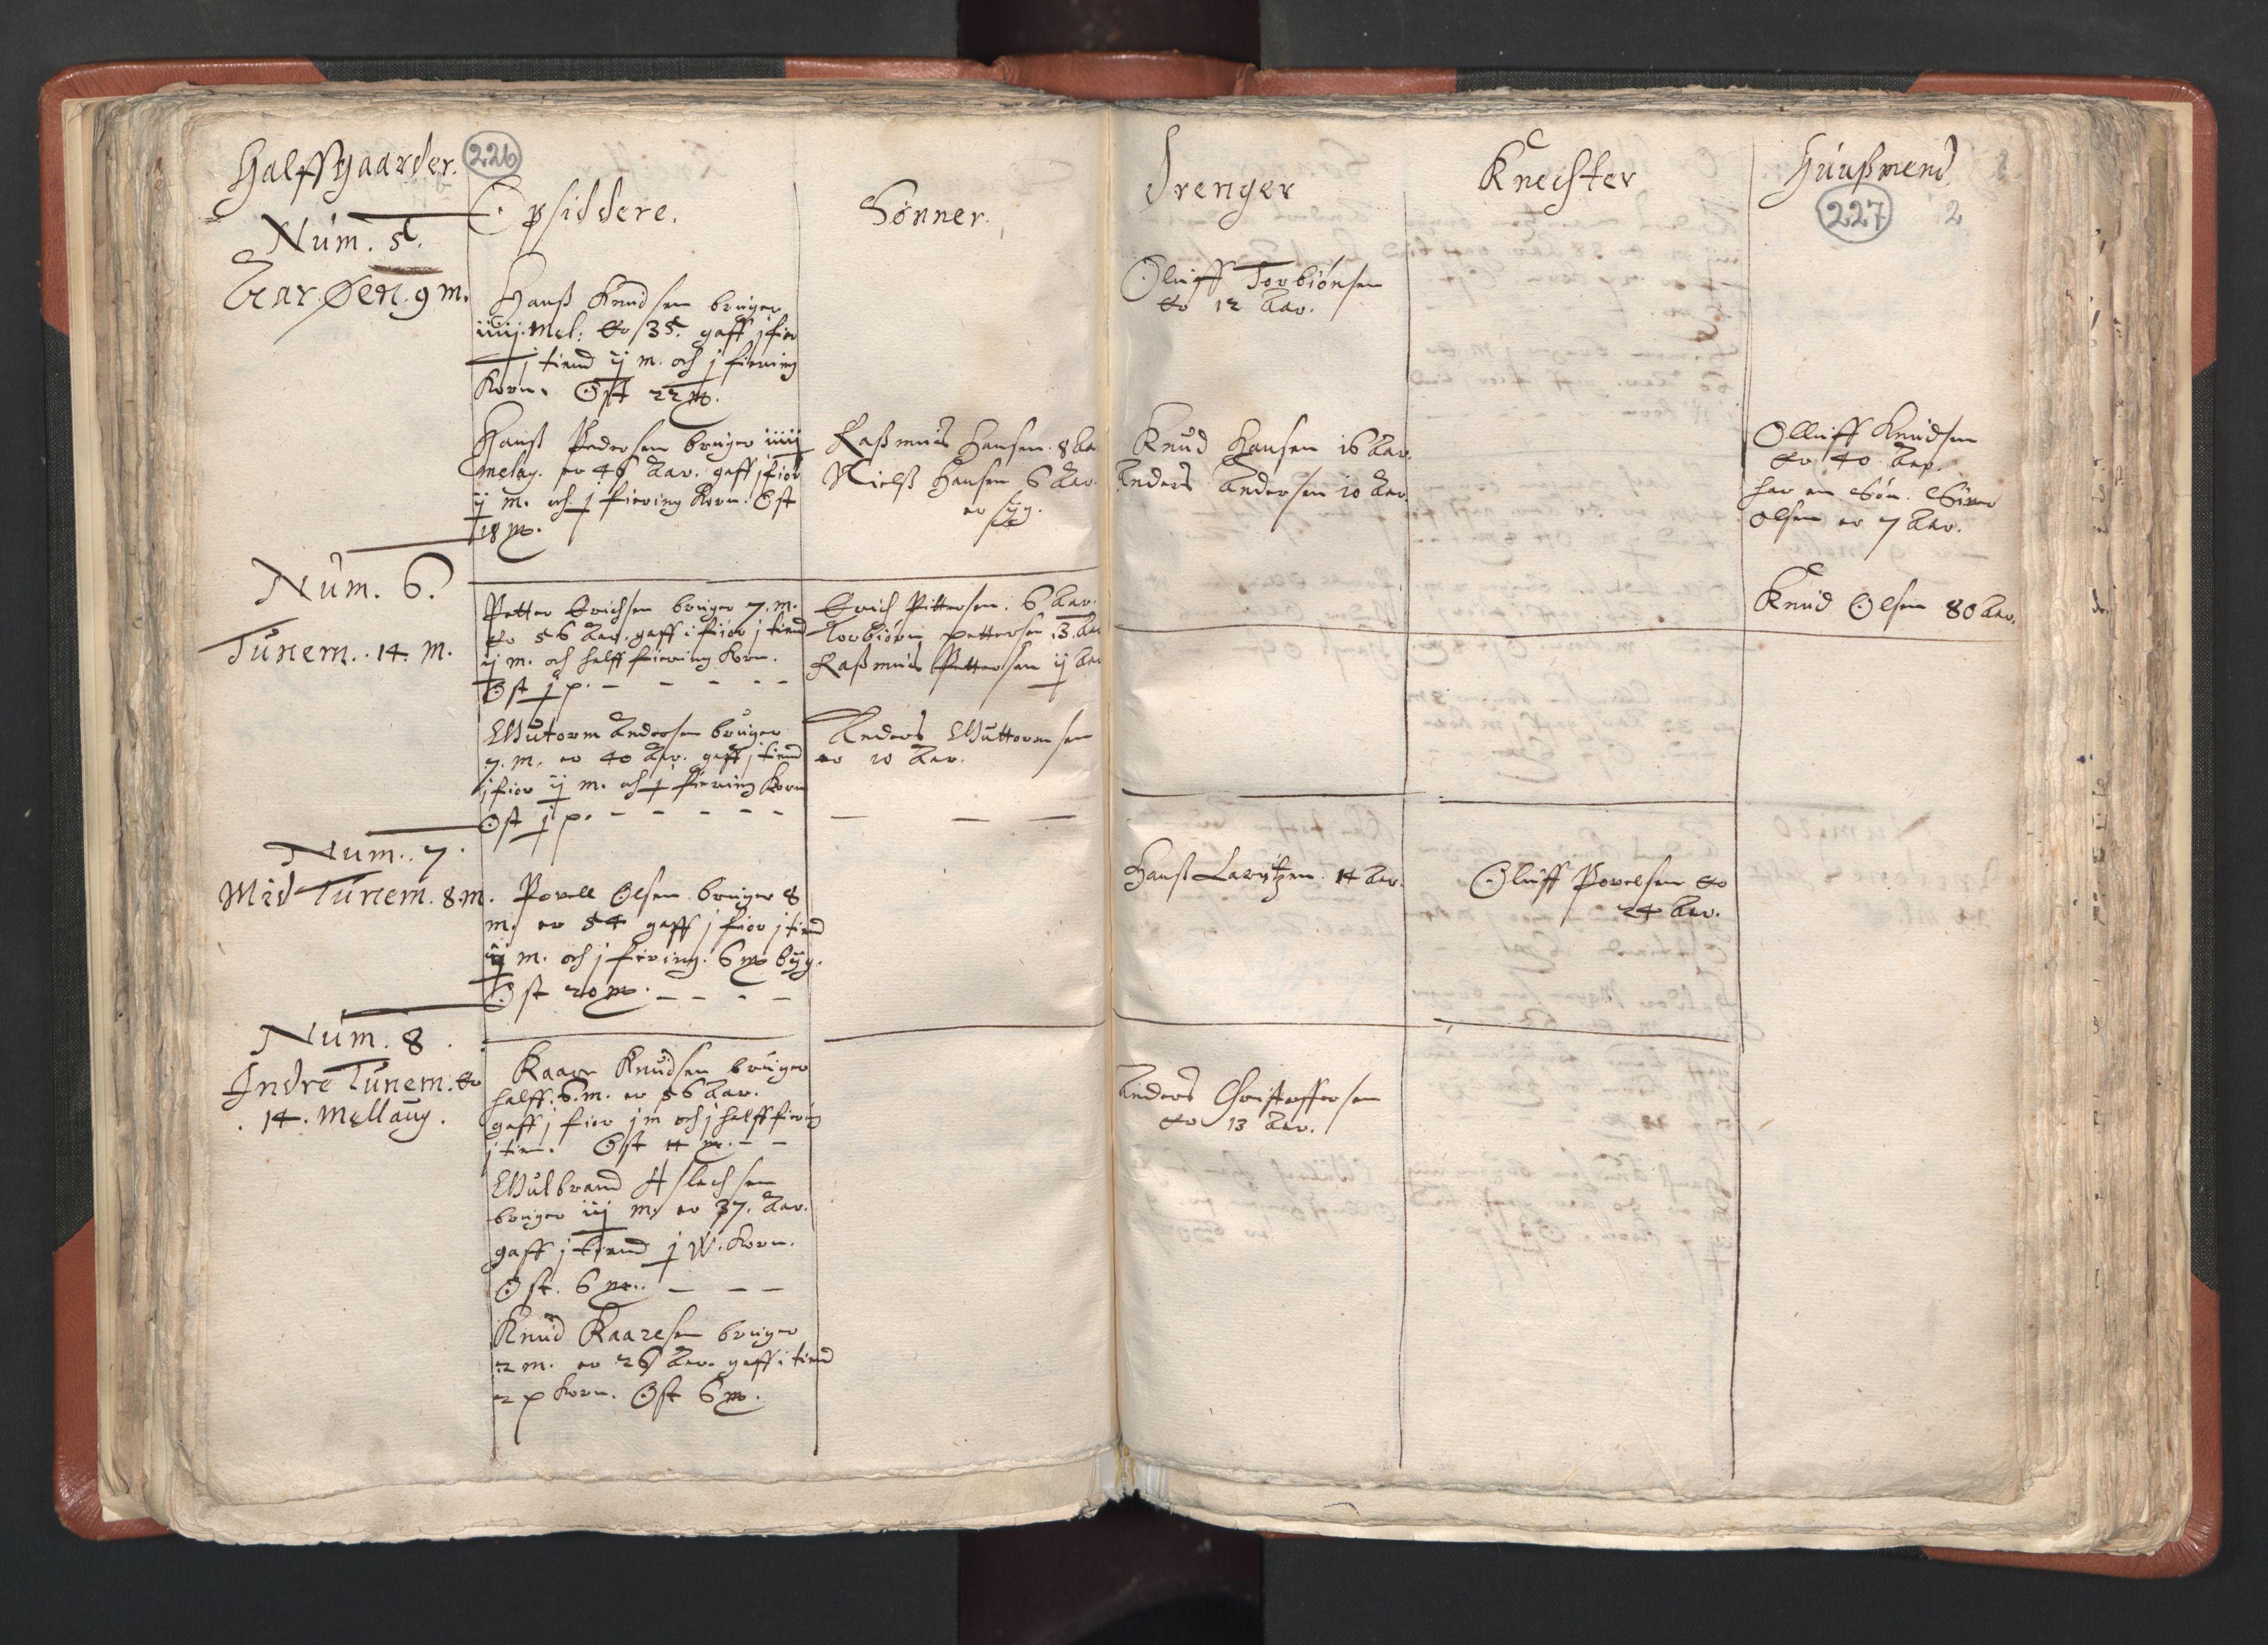 Halffgaarder.
226
Opsiddere.
Sønner.
Num. 5.
Aar Øen. 9 m.
Hanß Knudsen bruger
iiiij. Mel: er 35. gaff j fior
j tiend ij m. och j fiering
Korn. Ost 22 m.
Hanß Pedersen bruger iiiij
melag. er 46 Aar. gaff j fior
ij m. och j fiering Korn. Ost
18 m.
Raßmuus Hansen. 8 Aar
Nielß Hansen 6 Aar.
er siug.
Num. 6.
Tunem. 14. m.
Petter Erichsen bruger 7. m.
er 56 Aar. gaff i fior j tiend
ij m. och halff fiering Korn.
Ost j p. - - - - -
Erich Pittersen. 6 Aar.
Torbiørn Pettersen 13. Aar
Raßmuus Pettersen ij Aar
Gutorm Andersen bruger
7. m. er 40 Aar. gaff j tiend
j fior ij m. och j fiering Korn
Ost j p. - - - - -
Anders Guttormsen
er 10 Aar.
Num. 7.
Mid Tunem. 8. m.
Povell Olsen bruger 8
m. er 54 gaff j fior j tiend
ij m. och j fiering. 6 m byg.
Ost 20 m. - - - -
Num. 8.
Indre Tunem. er
14. Mellaug.
Kaare Knudsen bruger
halff. 6. m. er 56 Aar.
gaff j fior j m och j halff fiering
j tien. Ost 11 m. - -
Gulbrand Aslechsen
bruger iij m. er 37. Aar.
gaff j tiend j W. Korn.
Ost. 6 m. - - -
Knud Kaaresen bruger
2 m. er 26 Aar. gaff i tiend
2 p Korn. Ost 6 m.
Drenger
Knechter
Huußmend
227
2
Oluff Torbiønsen
er 12 Aar.
Knud Hansen 16 Aar.
Anders Andersen 10 Aar
Olluff Knudsen
er 40 Aar.
har en Søn.
Olsen er 7 Aar.
Knud Olsen 80 Aar.
Hanß Lauritzen. 14 Aar.
Oluff Povelsen er
24 Aar.
Anders Christoffersen
er 13 Aar.